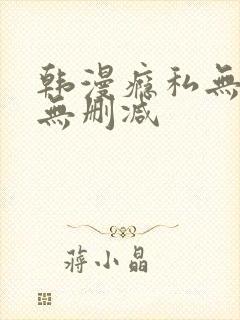 韩漫瘾私無
無删减
蒋小晶